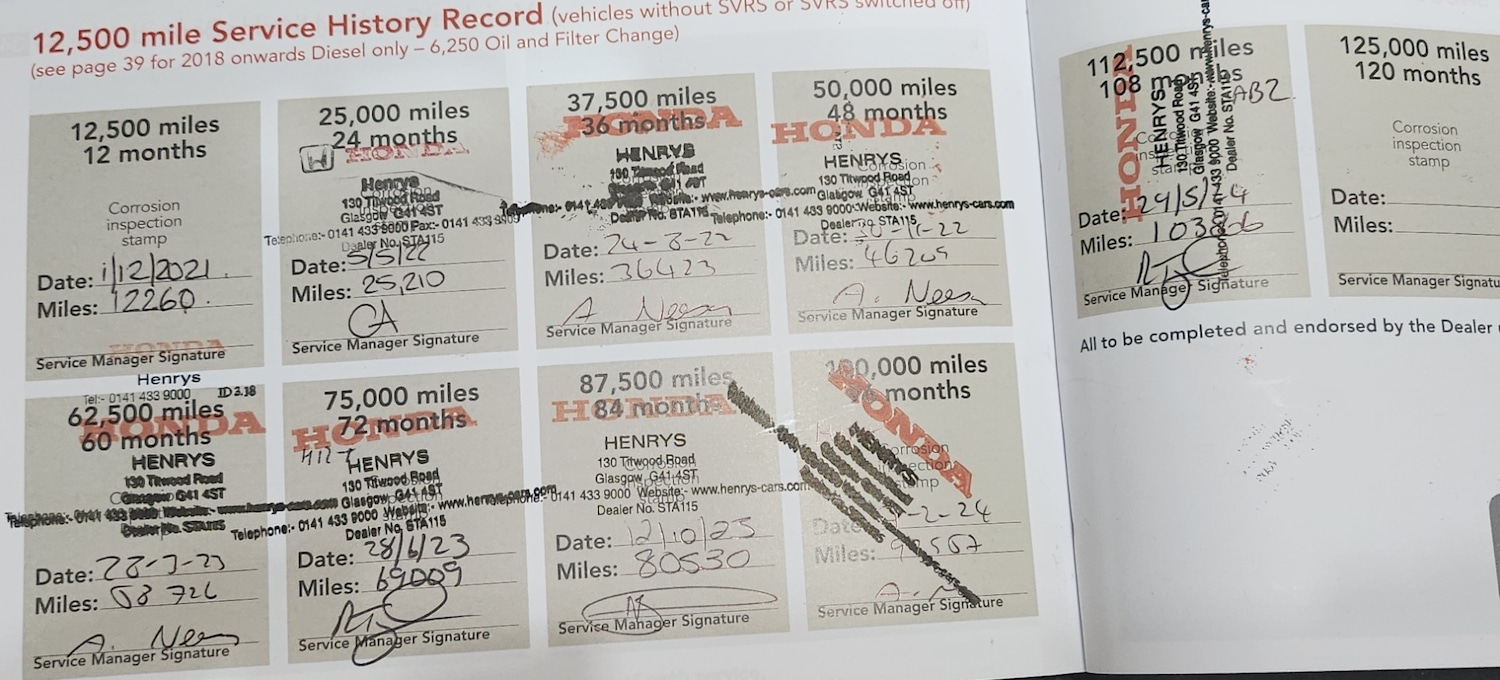 12,500 mile Service History Record (vehicles without SVRS or SVRS switched off)
(see page 39 for 2018 onwards Diesel only – 6,250 Oil and Filter Change)
12,500 miles
12 months
Corrosion
inspection
stamp
Date: 1/12/2021.
Miles: 12260.
HONDA
Service Manager Signature
Henrys
Tel:- 0141 433 9000 ID 3.18
25,000 miles
24 months
HONDA
Henrys
130 Titwood Road
Glasgow G41 4ST
Telephone:- 0141 433 9000 Fax:- 0141 433
Dealer No. STA115
Date: 5/5/22
Miles: 25,210
CA
Service Manager Signature
37,500 miles
36 months
HONDA
HENRYS
130 Titwood Road
Glasgow G41 4ST
Telephone:- 0141 433 Website:- www.henrys-cars.com
Dealer No. STA115
Date: 24-8-22
Miles: 36423
A. Neeson
Service Manager Signature
50,000 miles
48 months
HONDA
HENRYS
130 Titwood Road
Glasgow G41 4ST
Telephone:- 0141 433 9000 Website:- www.henrys-cars.com
Dealer no. STA115
Date: -22
Miles: 46209
A. Neeson
Service Manager Signature
62,500 miles
60 months
HONDA
HENRYS
130 Titwood Road
Glasgow G41 4ST
Telephone:- 0141 433 9000 Website:- www.henrys-cars.com
Dealer No. STA115
Date: 28-3-23
Miles: 58 726
A. Nees
Service Manager Signature
75,000 miles
72 months
HONDA
HENRYS
130 Titwood Road
Glasgow G41 4ST
Telephone:- 0141 433 9000 Website:- www.henrys-cars.com
Dealer No. STA115
Date: 28/6/23
Miles: 69009
Service Manager Signature
87,500 miles
84 months
HONDA
HENRYS
130 Titwood Road
Glasgow G41 4ST
Telephone:- 0141 433 9000 Website:- www.henrys-cars.com
Dealer No. STA115
Date: 12/10/23
Miles: 80530
Service Manager Signature
100,000 miles
months
HONDA
Corrosion
inspection
stamp
Date: -2-24
Miles:
Service Manager Signature
112,500 miles
108 months
HONDA
HENRYS
130 Titwood Road
Glasgow G41 4ST
Telephone:- 0141 433 9000 Website:- www.henrys-cars
Dealer No. STA115
AB2
Date: 29/5/24
Miles:
Service Manager Signature
125,000 miles
120 months
Corrosion
inspection
stamp
Date:
Miles:
Service Manager
All to be completed and endorsed by the Dealer